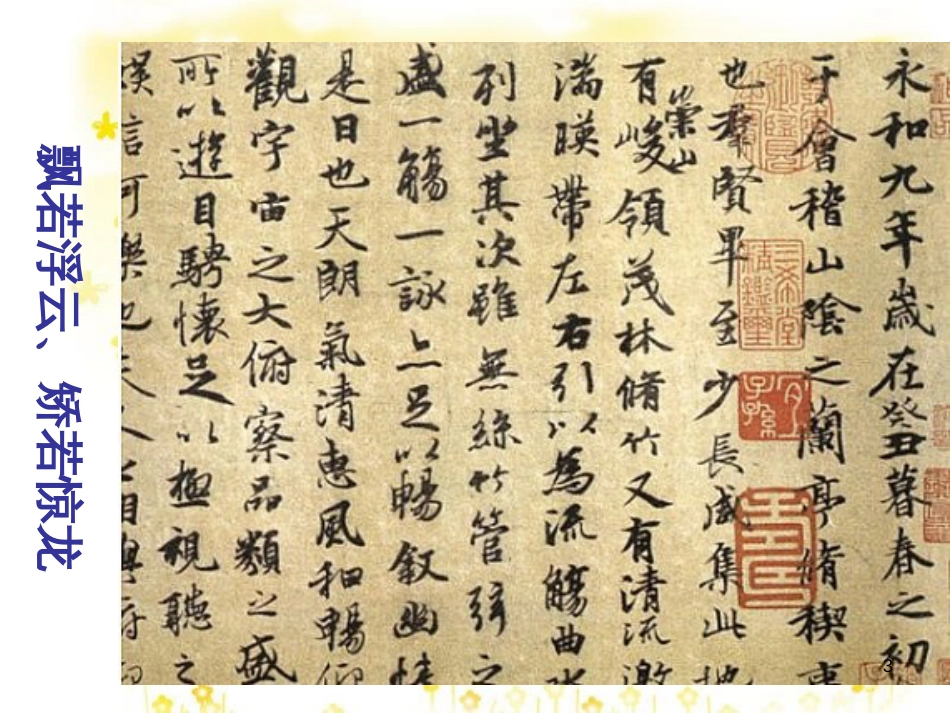 飘若浮云、矫若惊龙
永和九年歲在癸丑暮春之初
于會稽山陰之蘭亭脩禊事
也羣賢畢至少長咸集此地
有崇山峻領茂林脩竹又有清流激
湍暎帶左右引以為流觴曲水
列坐其次雖無絲竹管弦之
盛一觴一詠亦足以暢敘幽情
是日也天朗氣清惠風和暢仰
觀宇宙之大俯察品類之盛
所以遊目騁懷足以極視聽之
娛信可樂也夫人之相與俯仰
三希堂精鑑璽
宜子孫
3